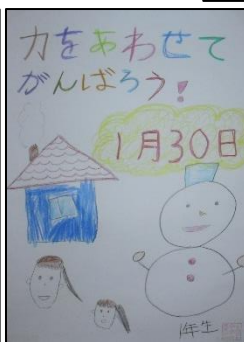 力をあわせて
がんばろう!
1月30日
1年生